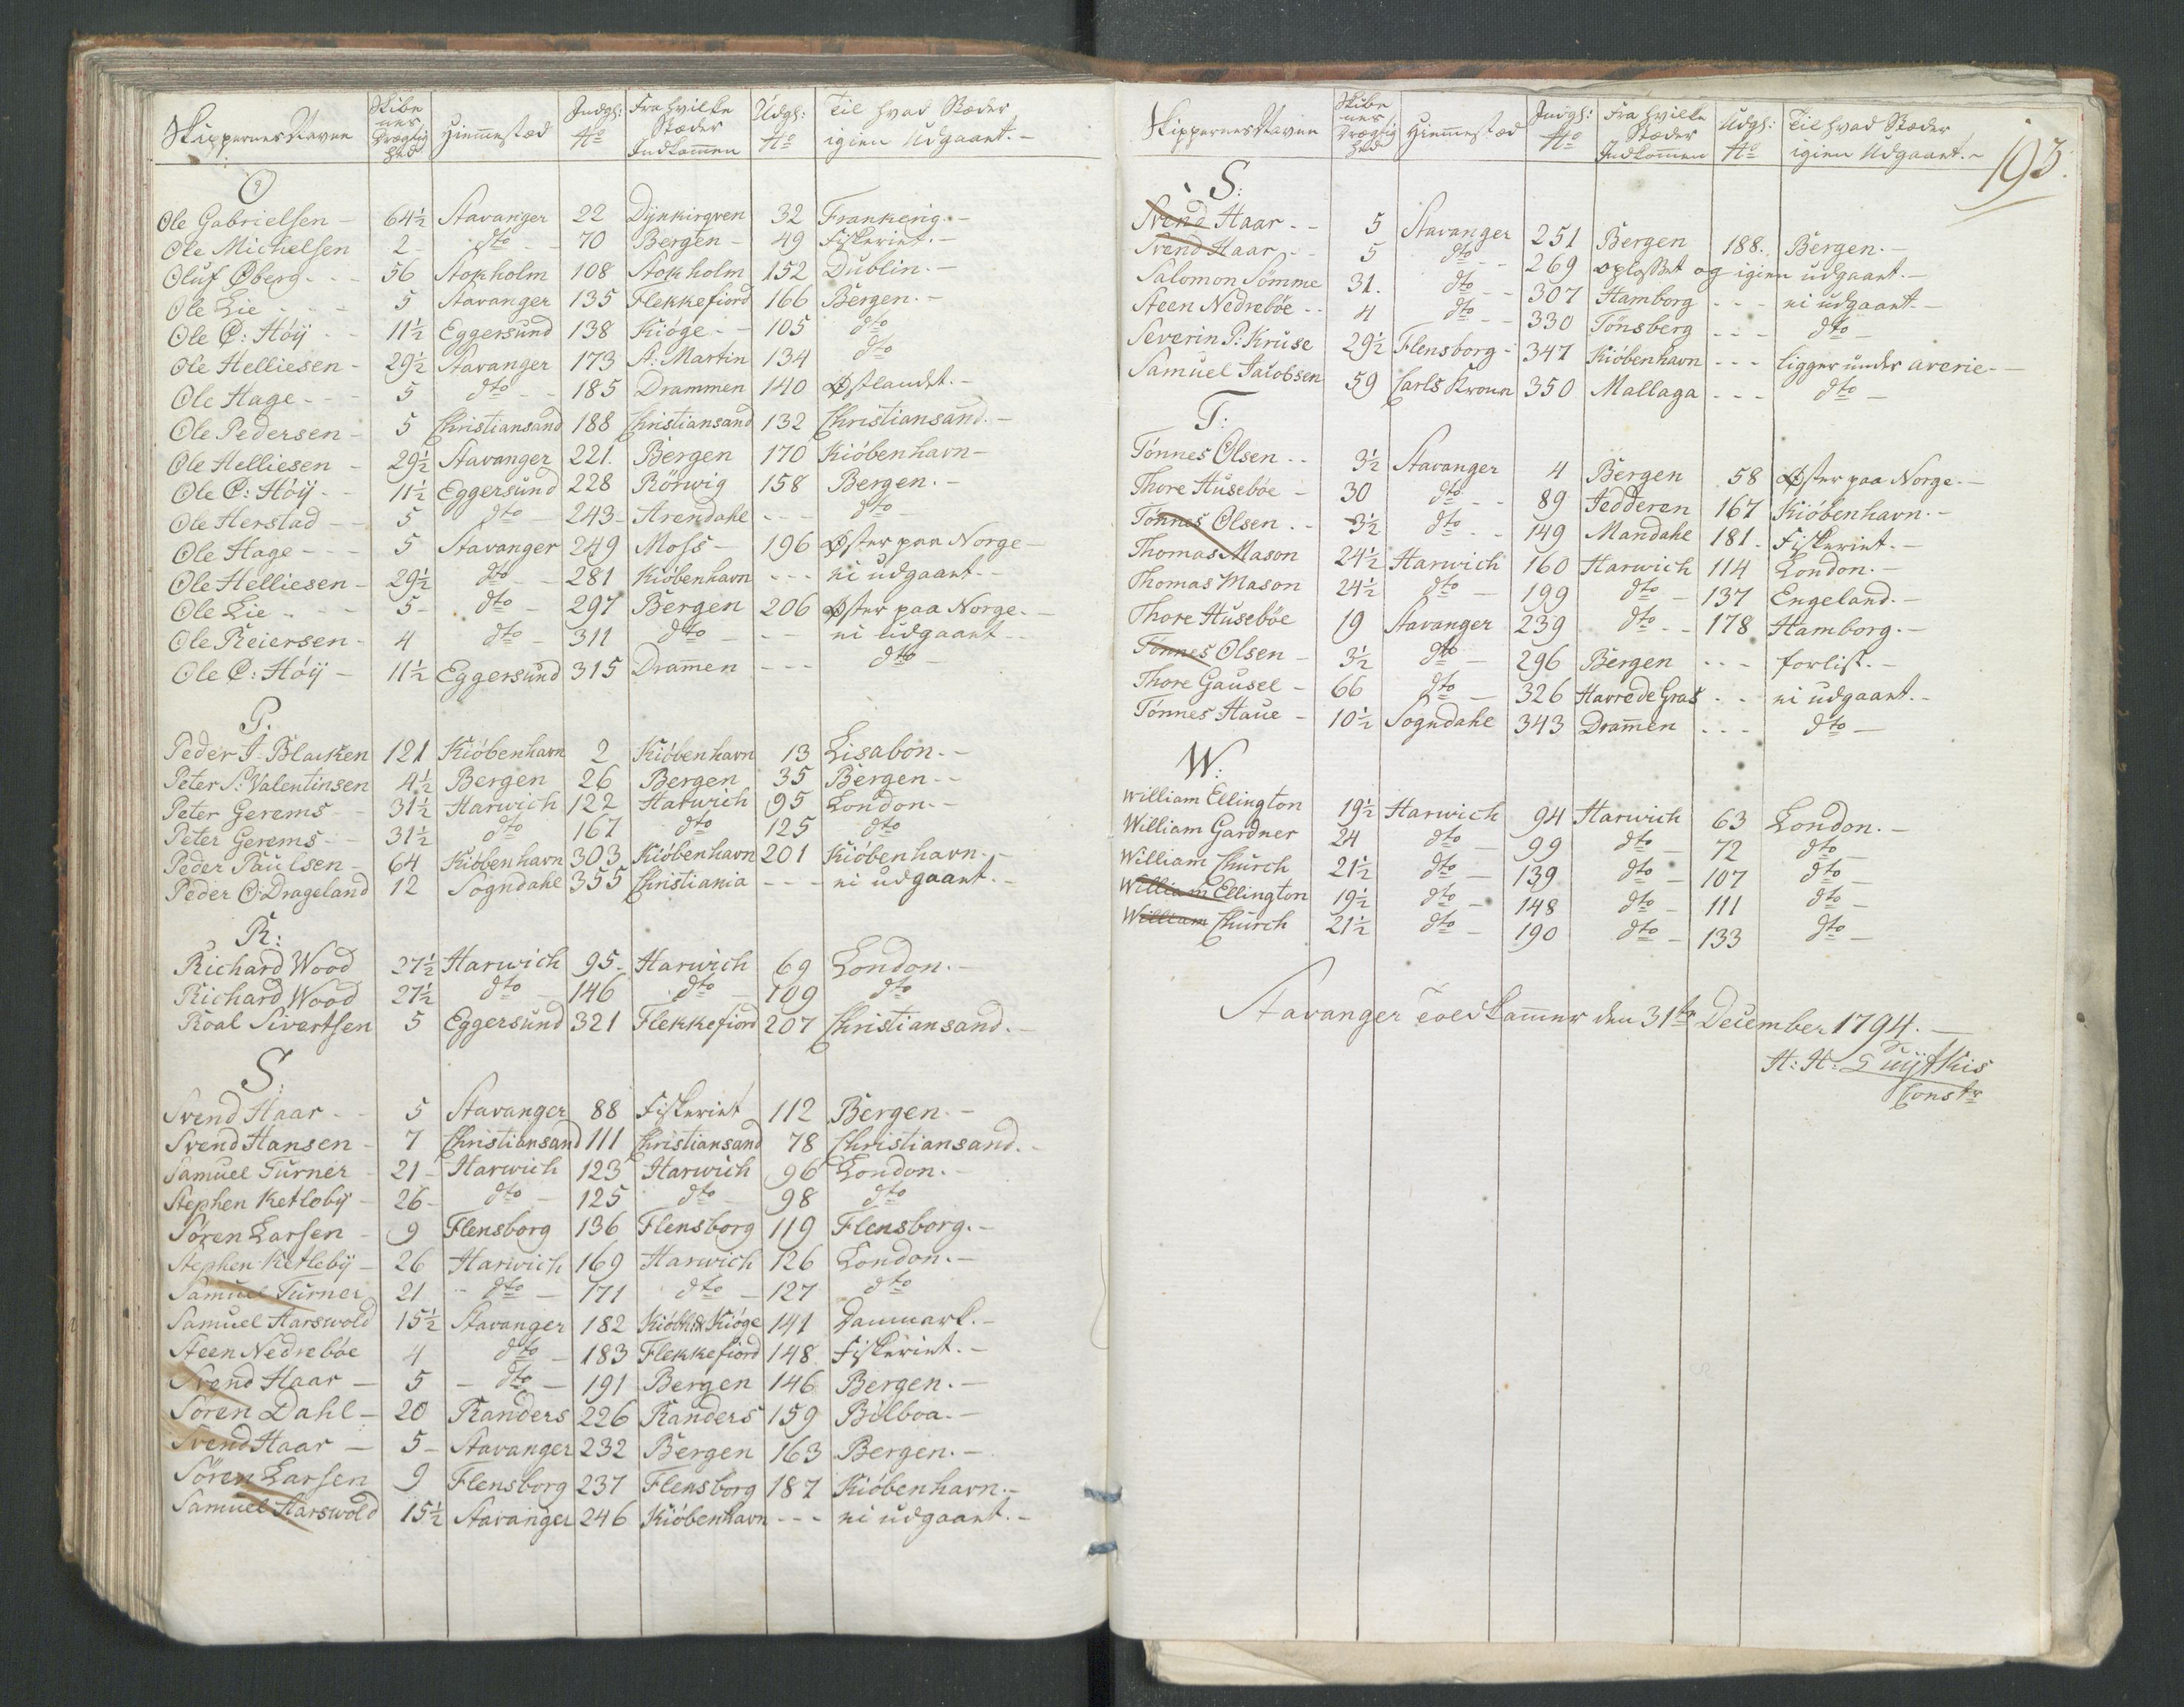 Skippernes Navne | Skibenes Drægtighed | Hiemmestæd | Indgl: No | Fra hvilke Stæder Indkommen | Udgl: No | Til hvad Stæder igien Udgaaet.-
O
Ole Gabrielsen - 64½ Stavanger 22 Dÿnkirqven 32 Frankerig.-
Ole Michelsen 2 - dto - - 70 Bergen - 49 Fiskeriet.-
Oluf Øberg - - - 56 Stokholm 108 Stokholm 152 Dublin.-
Ole Lie - - - 5 Stavanger 135 Flekkefiord 166 Bergen.-
Ole C: Höÿ - - 11½ Eggersund 138 Kiöge - - 105 dto
Ole Helliesen - 29½ Stavanger 173 St: Martin 134 dto
Ole Hage - - - 5 dto - - 185 Drammen 140 Østlandet.-
Ole Pedersen - 5 Christiansand 188 Christiansand 132 Christiansand.-
Ole Helliesen - 29½ Stavanger 221. Bergen 170 Kiöbenhavn-
Ole C: Höÿ - - 11½ Eggersund 228 Rörwig 158 Bergen.-
Ole Herstad - - 5 dto - 243 - Arendahl - - - dto -
Ole Hage - - - 5 Stavanger 249 Moss - 196 Øster paa Norge -
Ole Helliesen - 29½ dto - - 281 Kiöbenhavn - - - ei udgaaet.-
Ole Lie - - - 5 - dto - 297 Bergen 206 Øster paa Norge.-
Ole Reiersen - 4 dto - 311 dto - - - ei udgaaet - -
Ole C: Höÿ - 11½ Eggersund 315 Dramen - - - dto -
P:
Peder J: Blacken 121 Kiöbenhavn 2 Kiöbenhavn 13 Lisabon.-
Peter S: Valentinsen 4½ Bergen 26 Bergen 35 Bergen.-
Peter Gerems - - 31½ Harwich 122 Harwich 95 London.-
Peter Gerems - - 31½ dto 167 dto 125 dto
Peder Paulsen - 64 Kiöbenhavn 303 Kiöbenhavn 201 Kiöbenhavn.-
Peder O: Drageland 12 Sogndahl 355 Christiania - - - ei udgaaet.-
R:
Richard Wood 27½ Harwich 95. Harwich 69 London.-
Richard Wood 27½ dto - 146 dto - 109 dto
Roal Sivertsen 5 Eggersund 321 Flekkefiord 207 Christiansand.-
S:
Svend Haar - - 5 Stavanger 88 Fiskeriet 112 Bergen.-
Svend Hansen - 7 Christiansand 111 Christiansand 78 Christiansand.-
Samuel Turner 21 - Harwich 123 Harwich 96 London.-
Stephen Ketlebÿ - 26 - dto - 125 dto - 98 dto
Sören Larsen - 9 Flensborg 136 Flensborg 119 Flensborg.-
Stephen Ketlebÿ - 26 Harwich 169 Harwich 126 London.-
Samuel Turner 21 - dto - 171 dto - 127 dto
Samuel Harswold 15½ Stavanger 182 Kiöbh & Kiöge 141 Danmark.-
Steen Nedrebøe 4 dto - 183 Flekkefiord 148 Fiskeriet.-
Svend Haar - 5 - dto - 191 Bergen 146 Bergen.-
Sören Dahl - 20 Randers 226 Randers 159 Bilboa.-
Svend Haar - 5 - Stavanger 232 Bergen 163 Bergen.-
Sören Larsen 9 Flensborg 237 Flensborg 187 Kiöbenhavn.-
Samuel Harswold 15½ Stavanger 246 Kiöbenhavn - - - ei udgaaet.-
193.
Skippernes Navne | Skibenes Drægtighed | Hiemmestæd | Indgl: No | Fra hvilke Stæder Indkommen | Udgl: No | Til hvad Stæder igien Udgaaet.-
S:
Svend Haar - - 5 Stavanger 251 Bergen 188. Bergen.-
Svend Haar - - 5 dto - - 269 oplosset og igien udgaaet.-
Salomon Sömme 31. dto - - 307 Hamborg - - - ei udgaaet.-
Steen Nedrebøe - - 4 dto - - 330 Tönsberg - - - dto -
Severin P: Kruse 29½ Flensborg - 347 Kiöbenhavn - - - ligger under averie.-
Samuel Jacobsen 59 Carls Krona 350 Mallaga - - - dto -
T:
Tönnes Olsen - - 3½ Stavanger 4 Bergen 58 Øster paa Norge.-
Thore Husebøe - 30 dto - - 89 Jedderen 167 Kiöbenhavn.-
Tönnes Olsen - - 3½ dto - - 149 Mandahl 181. Fiskeriet.-
Thomas Mason 24½ Harwich 160 Harwich 114 London.-
Thomas Mason 24½ dto - 199 dto - 137 Engeland.-
Thore Husebøe 19 Stavanger 239 dto - - 178 Hamborg.-
Tönnes Olsen - 3½ dto - 296 Bergen - - - forlist.-
Thore Gausel - 66 dto - 326 Havre de Gras - - ei udgaaet.-
Tönnes Haue - 10½ Sogndahl 343 Dramen - - - dto -
W:
William Ellington 19½ Harwich 94 Harwich 63 London.-
William Gardner 24 dto - 99 dto - 72 dto -
William Church 21½ dto - 139 dto - 107 dto -
William Ellington 19½ dto - 148 dto - 111 dto -
William Church 21½ dto - 190 dto - 133 dto -
Stavanger Toldkammer den 31te December 1794.-